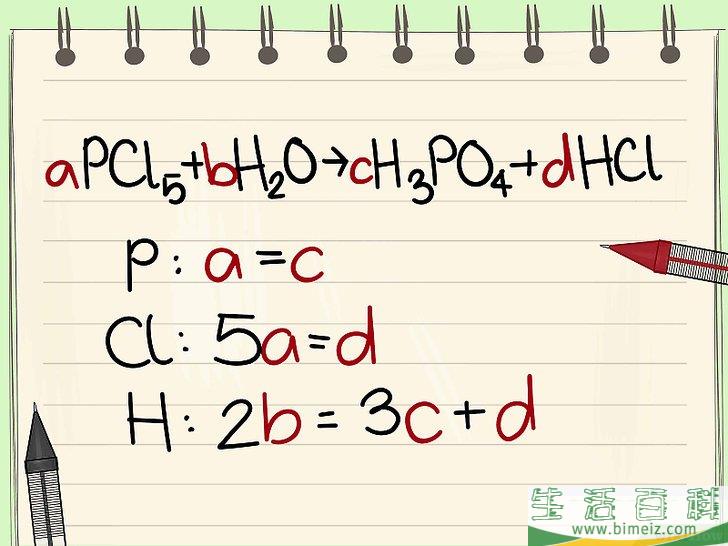 aPCl₅+bH₂O→cH₃PO₄+dHCl
P: a=c
Cl: 5a=d
H: 2b=3c+d
生活百科
www.bimeiz.com